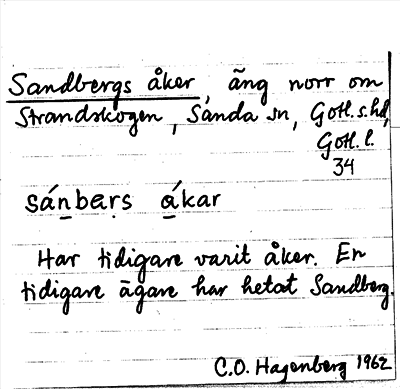 Sandbergs åker, äng norr om
Strandskogen, Sanda sn, Gotl. s. hd,
Gotl. l.
34
sánbers ákar
Har tidigare varit åker. En
tidigare ägare har hetat Sandberg.
C.O. Hagenberg 1962